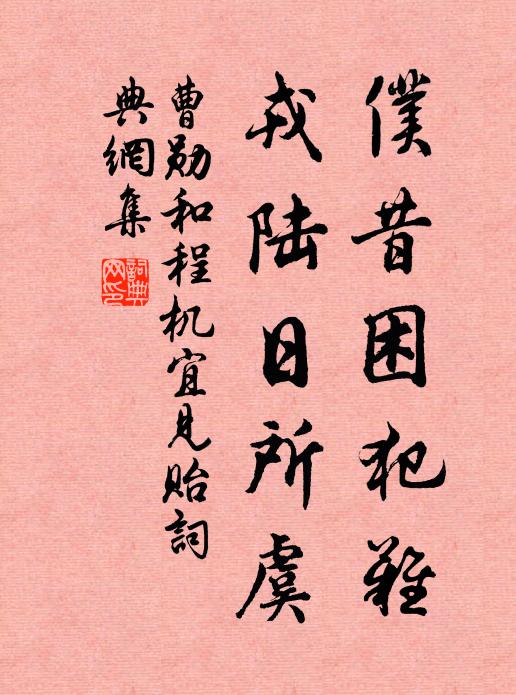 僕昔困犯難
戎陆日所虞
曹勋和程机宜見贻詞
典網集
詞典網印